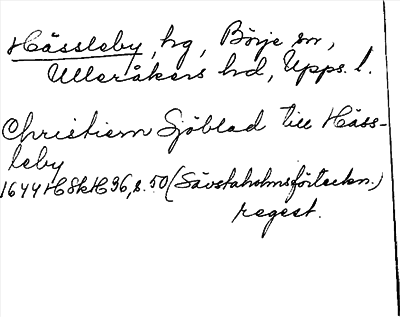 Hässleby, hg, Börje sn,
Ulleråkers hd, Upps. l.
Christiern Sjöblad till Häss-
leby
1644 HSk H 36, s. 50 (Sävstaholmsförteckn.)
regest.